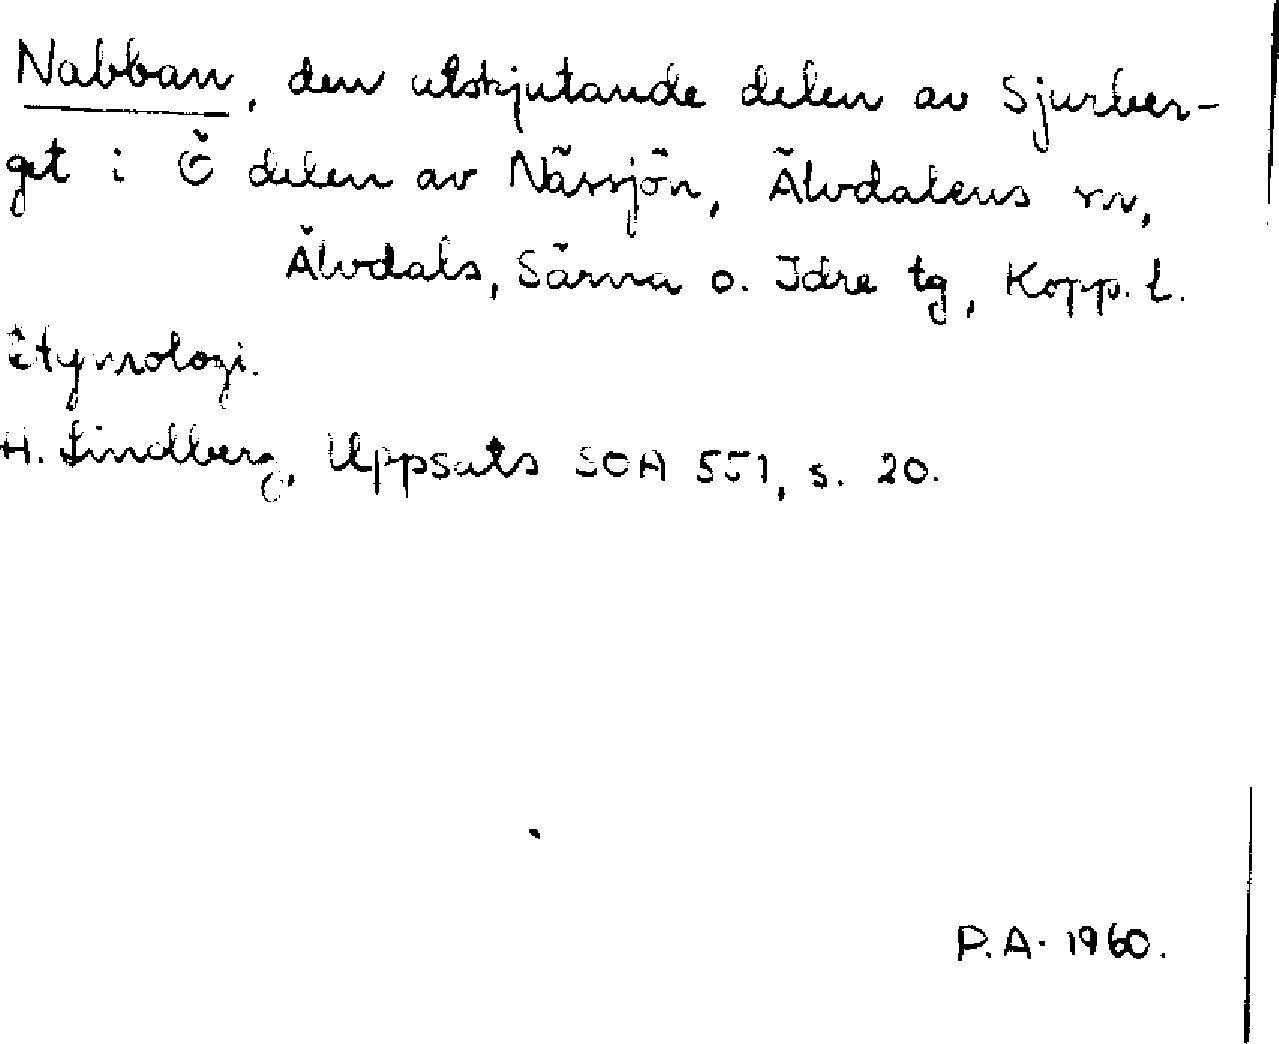 Nabban, den utskjutande delen av Sjurber-
get i Ö delen av Nässjön, Älvdalens rv,
Älvdals, Särna o. Idre tg, Kopp. l.
Etymologi.
H. Lindberg, Uppsats SOA 551, s. 20.
P.A. 1960.